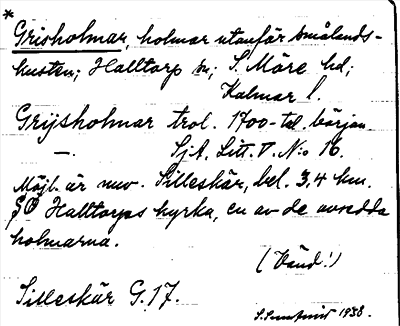 *
Grisholmar, holmar utanför Smålands-
kusten; Halltorp sn; S. Möre hd;
Kalmar l.
Grijsholmar trol. 1700-tal. början.
—. SjA. Litt. V. N:o 16.
Möjl. är nuv. Silleskär, bel. 3,4 km.
SO Halltorps kyrka, en av de avsedda
holmarna.
(Vänd!)
Silleskär G. 17.
1938.